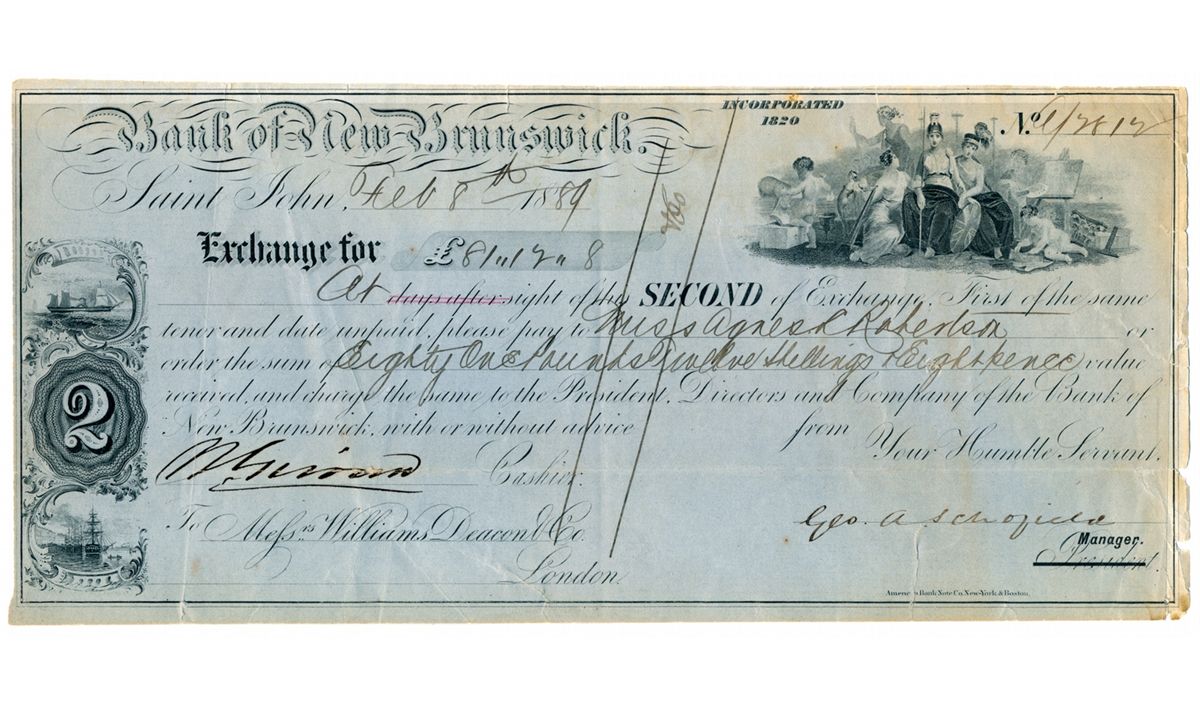 INCORPORATED
1820
Bank of New Brunswick.
No.
Saint John, Feb 8th 1889
Exchange for £81"12"8
At days after sight of this SECOND of Exchange, First of the same
tenor and date unpaid, please pay to Miss Agnes Robertson or
order the sum of Eighty One Pounds Twelve Shillings & Eight pence value
received, and charge the same to the President, Directors and Company of the Bank of
New Brunswick, with or without advice from
Your Humble Servant.
2
Cashier.
To Messrs Williams Deacon & Co.
London.
Geo. A Schofield
Manager.
President.
American Bank Note Co. New-York & Boston.